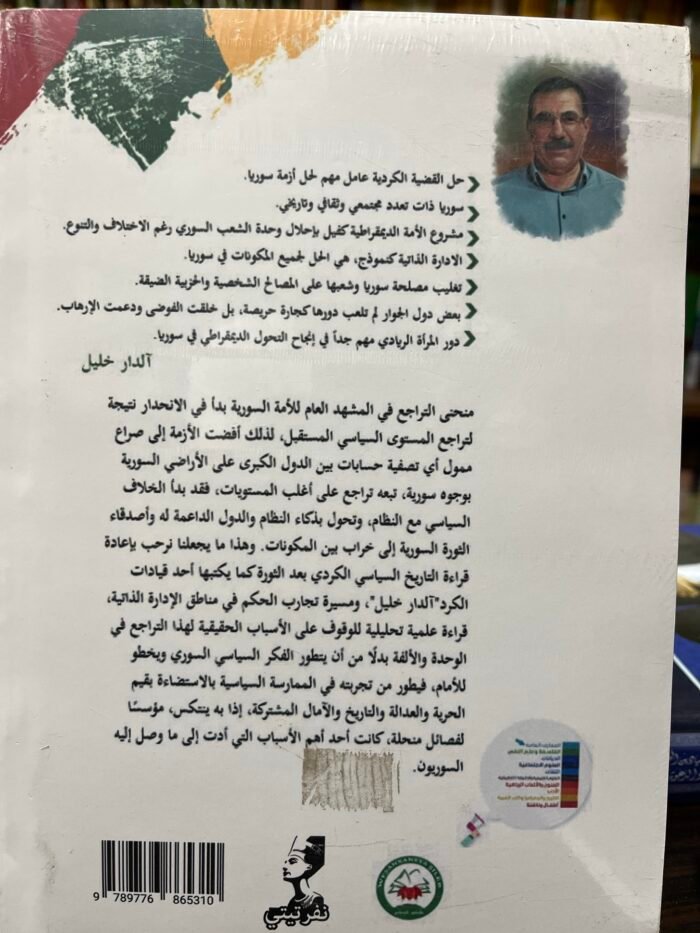 حل القضية الكردية عامل مهم لحل أزمة سوريا.
سوريا ذات تعدد مجتمعي وثقافي وتاريخي.
مشروع الأمة الديمقراطية كفيل بإحلال وحدة الشعب السوري رغم الاختلاف والتنوع.
الادارة الذاتية كنموذج، هي الحل لجميع المكونات في سوريا.
تغليب مصلحة سوريا وشعبها على المصالح الشخصية والحزبية الضيقة.
بعض دول الجوار لم تلعب دورها كجارة حريصة، بل خلقت الفوضى ودعمت الإرهاب.
دور المرأة الريادي مهم جداً في إنجاح التحول الديمقراطي في سوريا.
آلدار خليل
منحنى التراجع في المشهد العام للأمة السورية بدأ في الانحدار نتيجة
لتراجع المستوى السياسي المستقبل، لذلك أفضت الأزمة إلى صراع
ممول أي تصفية حسابات بين الدول الكبرى على الأراضي السورية
بوجوه سورية، تبعه تراجع على أغلب المستويات، فقد بدأ الخلاف
السياسي مع النظام، وتحول بذكاء النظام والدول الداعمة له وأصدقاء
الثورة السورية إلى خراب بين المكونات. وهذا ما يجعلنا نرحب بإعادة
قراءة التاريخ السياسي الكردي بعد الثورة كما يكتبها أحد قيادات
الكرد"آلدار خليل"، ومسيرة تجارب الحكم في مناطق الإدارة الذاتية،
قراءة علمية تحليلية للوقوف على الأسباب الحقيقية لهذا التراجع في
الوحدة والألفة بدلًا من أن يتطور الفكر السياسي السوري ويخطو
للأمام، فيطور من تجربته في الممارسة السياسية بالاستضاءة بقيم
الحرية والعدالة والتاريخ والآمال المشتركة، إذا به ينتكس، مؤسسًا
لفصائل منحلة، كانت أحد أهم الأسباب التي أدت إلى ما وصل إليه
السوريون.
المعارف العامة
الفلسفة وعلم النفس
الديانات
العلوم الاجتماعية
اللغات
الفنون والألعاب الرياضية
الأدب
أطفال وناشئة
9 789776 865310
نفرتيتي